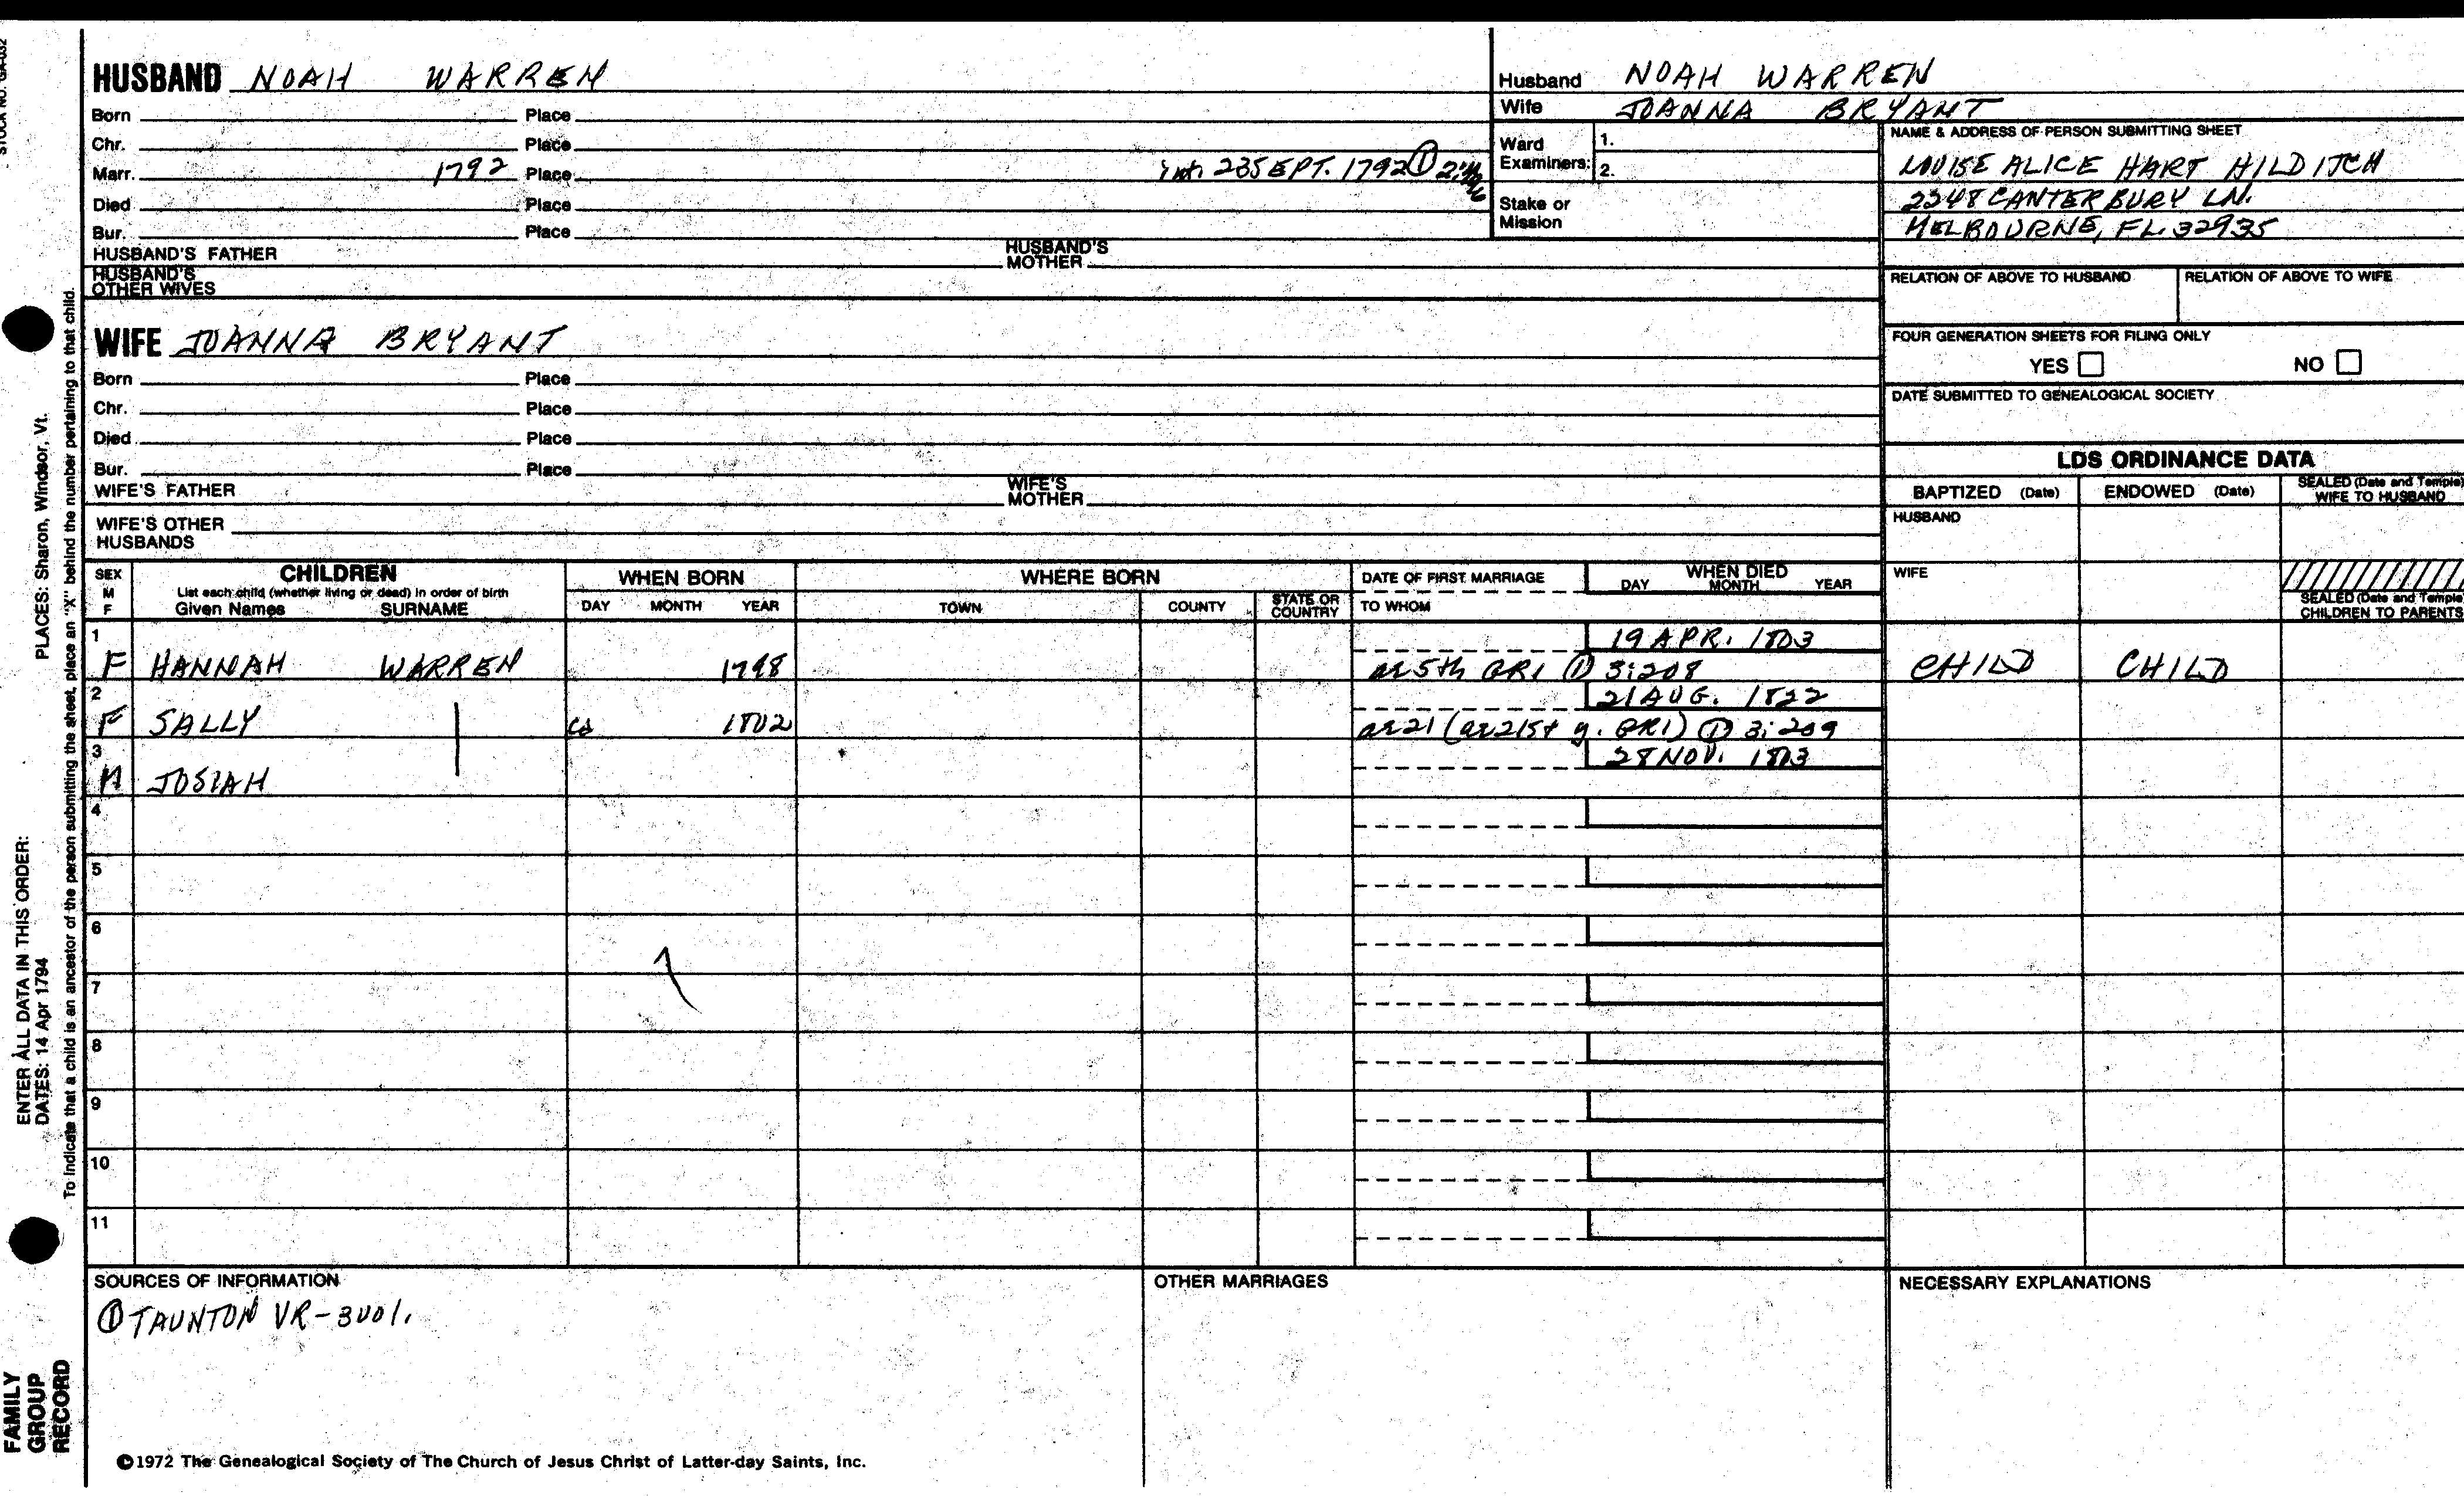 STOCK NO. GA-032
HUSBAND NOAH WARREN
Born Place
Chr. Place
Marr. 1792 Place int. 23 SEPT. 1792 ①
Died Place
Bur. Place
HUSBAND'S FATHER HUSBAND'S MOTHER
HUSBAND'S OTHER WIVES
Husband NOAH WARREN
Wife JOANNA BRYANT
Ward Examiners: 1.
2.
Stake or Mission
NAME & ADDRESS OF PERSON SUBMITTING SHEET
LOUISE ALICE HART HILDITCH
2248 CANTERBURY LN.
MELBOURNE, FL. 32935
RELATION OF ABOVE TO HUSBAND RELATION OF ABOVE TO WIFE
FOUR GENERATION SHEETS FOR FILING ONLY
YES NO
DATE SUBMITTED TO GENEALOGICAL SOCIETY
WIFE JOANNA BRYANT
Born Place
Chr. Place
Died Place
Bur. Place
WIFE'S FATHER WIFE'S MOTHER
WIFE'S OTHER HUSBANDS
LDS ORDINANCE DATA
BAPTIZED (Date) ENDOWED (Date) SEALED (Date and Temple) WIFE TO HUSBAND
HUSBAND
WIFE
SEALED (Date and Temple) CHILDREN TO PARENTS
SEX M F
CHILDREN
List each child (whether living or dead) in order of birth
Given Names SURNAME
WHEN BORN
DAY MONTH YEAR
WHERE BORN
TOWN COUNTY STATE OR COUNTRY
DATE OF FIRST MARRIAGE
TO WHOM
WHEN DIED
DAY MONTH YEAR
1 19 APR. 1803
F HANNAH WARREN 1798 ae 5th GR1 ① 3:208 CHILD CHILD
2 21 AUG. 1822
F SALLY | ca 1802 ae 21 (ae 21st y. GR1) ① 3:209
3 28 NOV. 1813
M JOSIAH
4
5
6
7
8
9
10
11
SOURCES OF INFORMATION
① TAUNTON VR-3vol.
OTHER MARRIAGES
NECESSARY EXPLANATIONS
©1972 The Genealogical Society of The Church of Jesus Christ of Latter-day Saints, Inc.
FAMILY GROUP RECORD
ENTER ALL DATA IN THIS ORDER:
DATES: 14 Apr 1794 PLACES: Sharon, Windsor, Vt.
To indicate that a child is an ancestor of the person submitting the sheet, place an "X" behind the number pertaining to that child.